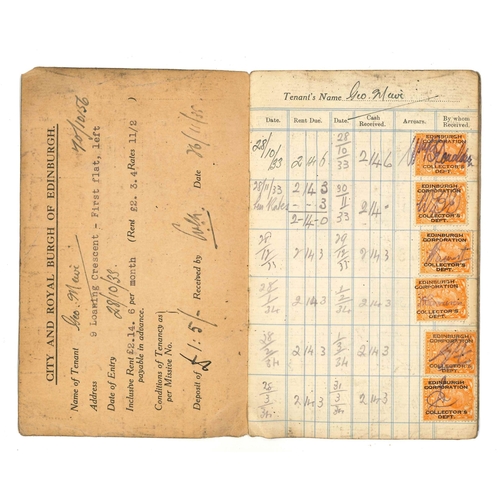 CITY AND ROYAL BURGH OF EDINBURGH.
Name of Tenant Geo. Mewi
Address 9 Loaning Crescent - First flat, left
Date of Entry 28/10/33
Inclusive Rent £2.14. 6 per month (Rent £2. 3.4 Rates 11/2 )
payable in advance.
Conditions of Tenancy as
per Missive No.
Deposit of £1:5/- Received by Date
Tenant's Name Geo. Mewi
Date. Rent Due. Date. Cash Received. Arrears. By whom Received.
28/10/33 2 14 6 28/10/33 2 14 6
EDINBURGH CORPORATION COLLECTOR'S DEPT.
28/11/33 2 14 3 30/11/33 2 14
Rates - - 3
2-14-0
EDINBURGH CORPORATION COLLECTOR'S DEPT.
28/12/33 2 14 3 29/12/33 2 14 3
EDINBURGH CORPORATION COLLECTOR'S DEPT.
28/1/34 2 14 3 1/2/34 2 14 3
EDINBURGH CORPORATION COLLECTOR'S DEPT.
28/2/34 2 14 3 1/3/34 2 14 3
EDINBURGH CORPORATION COLLECTOR'S DEPT.
28/3/34 2 14 3 31/3/34 2 14 3
EDINBURGH CORPORATION COLLECTOR'S DEPT.